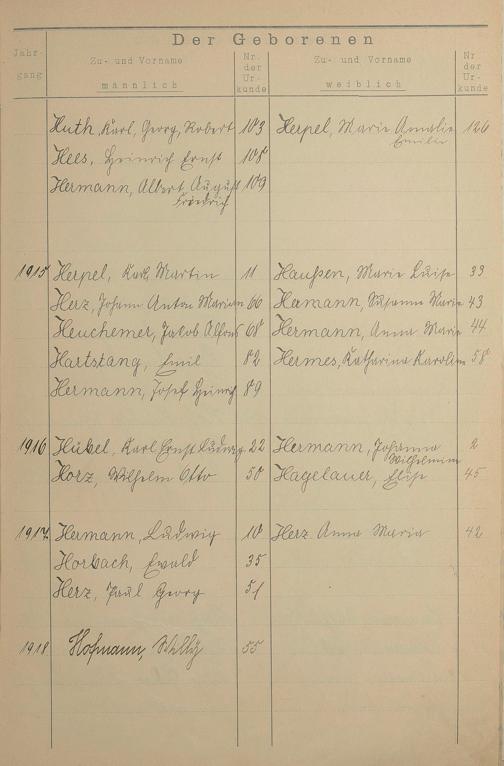 Der Geborenen
Jahrgang Zu- und Vorname männlich Nr. der Urkunde Zu- und Vorname weiblich Nr der Urkunde
Huth, Karl, Georg, Robert 103 Herpel, Marie Amalie 126
Emilie
Hees, Heinrich Ernst 108
Hermann, Albert August 109
Friedrich
1915 Herpel, Karl, Martin 11 Haußen, Marie Luise 33
Herz, Johann Anton Marian 60 Hermann, Susanna Marie 43
Heuchemer, Jakob Alfons 68 Hermann, Anna Marie 44
Hartstang, Emil 82 Hermes, Katharina Karoline 58
Hermann, Josef Heinrich 89
1916 Hübel, Karl Ernst Ludwig 22 Hermann, Johanna 2
Wilhelmine
Horz, Wilhelm Otto 50 Hagelauer, Elise 45
1917 Hermann, Ludwig 10 Herz Anna Maria 42
Horbach, Ewald 35
Herz, Paul Georg 51
1918 Hofmann, Willy 55